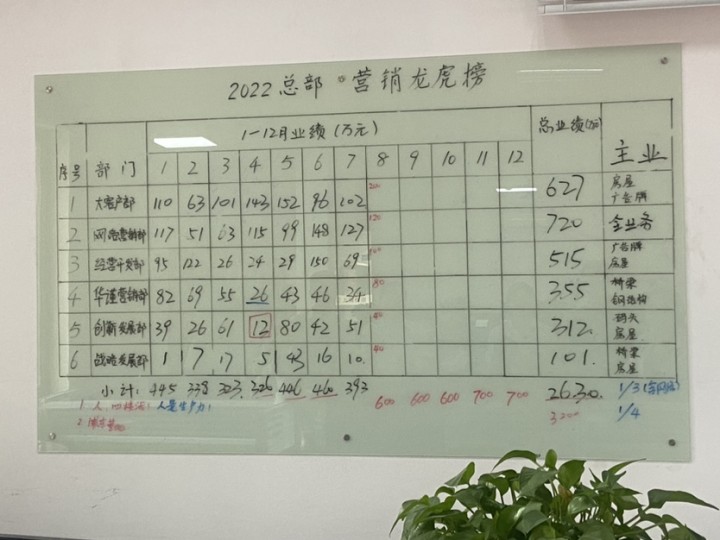 2022 总部 · 营销龙虎榜
序号 部门 1-12月业绩(万元) 总业绩(万) 主业
1 2 3 4 5 6 7 8 9 10 11 12
1 大客户部 110 63 101 143 152 96 102 200 627 房屋 广告牌
2 网络营销部 117 51 63 115 99 148 127 120 720 全业务
3 经营开发部 95 122 26 24 29 150 69 515 广告牌 房屋
4 华谨营销部 82 69 55 26 43 46 34 80 355 桥梁 钢结构
5 创新发展部 39 26 61 12 80 42 51 312. 码头 房屋
6 战略发展部 1 7 17 5 43 16 10. 101. 桥梁 房屋
小计: 445 338 323. 326 446 460 393 600 600 600 700 700 2630. 1/3
3200 1/4
1. 人 人是生产力!
2.